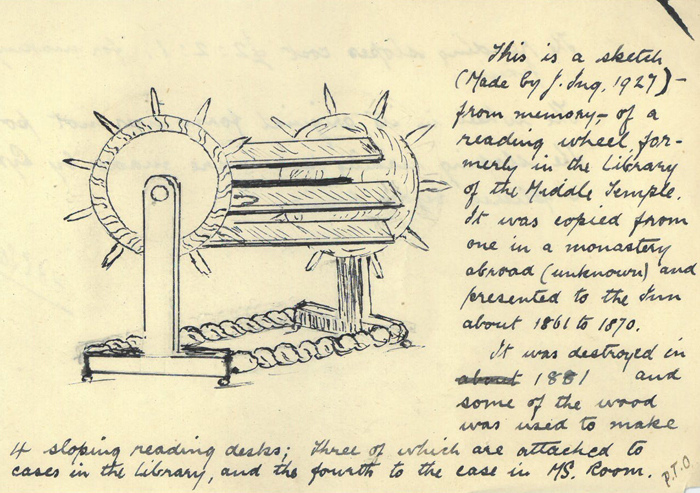 This is a sketch
(Made by J. Ing, 1927) –
from memory – of a
reading wheel, for-
merly in the Library
of the Middle Temple.
It was copied from
one in a monastery
abroad (unknown) and
presented to the Inn
about 1861 to 1870.
It was destroyed in
about 1881 and
some of the wood
was used to make
4 sloping reading desks; three of which are attached to
cases in the Library, and the fourth to the case in MS. Room.
P.T.O.